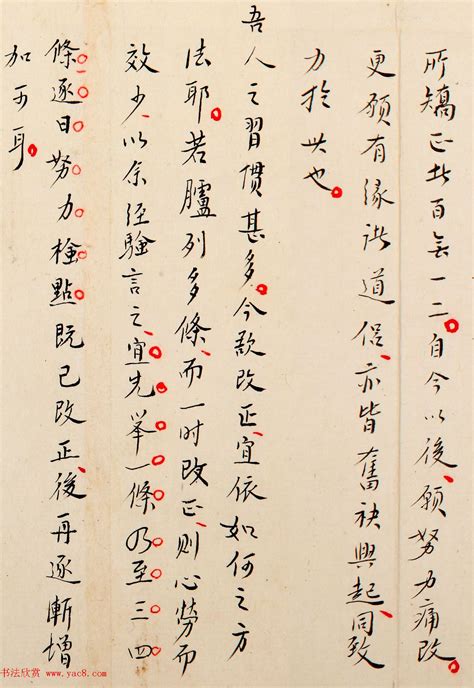 所矯正此百無一二自今以後、願努力痛改。
更願有緣諸道侶、亦皆奮袂興起、同致
力於此也。
吾人之習慣甚多。今欲改正、宜依如何之方
法耶。若臚列多條、而一时改正、則心勞而
效少、以余經驗言之、宜先舉一條乃至三四
條逐日努力檢點既已改正、後再逐漸增
加可耳。
书法欣赏 www.yac8.com